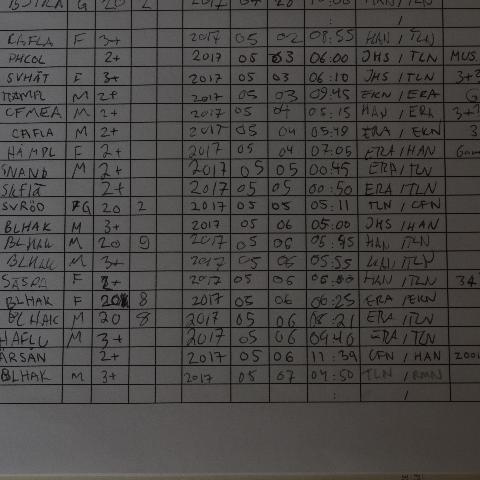 G 20 2 2017
/
F 3+ 2017 05 02 08:55 HAN / TLN
PHCOL 2+ 2017 05 03 06:00 JHS / TLN MUS
SVHÄT F 3+ 2017 05 03 06:10 JHS / TLN 3+?
M 2+ 2017 05 03 09:45 EKN / ERA G
CFMEA M 2+ 2017 05 05:15 HAN / ERA
CAFLA M 2+ 2017 05 04 ERA / EKN 3
HÄMPL F 2+ 2017 05 04 07:05 ERA / HAN
M 2+ 2017 05 05 00:45 ERA / TLN
2+ 2017 05 05 00:50 ERA / TLN
SVRÖD G 20 2 2017 05 05 05:11 TLN / CFN
BLHAK M 3+ 2017 05 06 05:00 JHS / HAN
BLHAK M 20 9 2017 05 06 05:45 HAN / TLN
BLHAK M 3+ 2017 05 06 05:55 HAN / TLN
F 2+ 2017 05 06 HAN / TLN 34
BLHAK F 20 8 2017 05 06 06:25 ERA / EKN
BLHAK M 20 8 2017 05 06 08:21 ERA / TLN
M 3+ 2017 05 06 09:40 ERA / TLN
ÄRSÅN 2+ 2017 05 06 11:39 CFN / HAN
BLHAK M 3+ 2017 05 07 04:50 TLN / RMN
: /